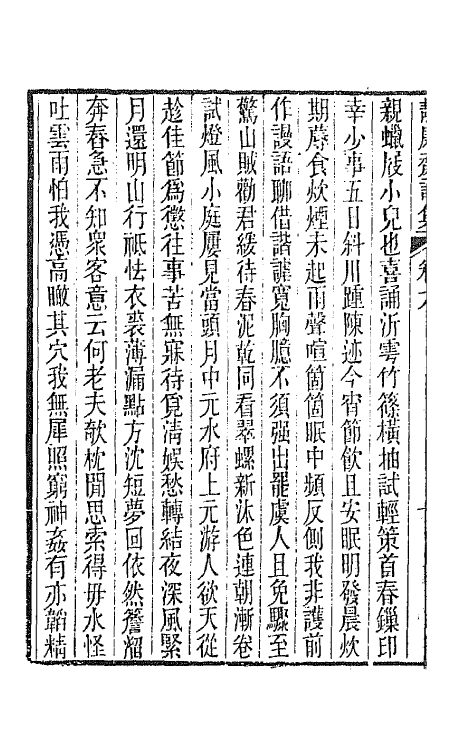 親蠟屐小兒也喜誦沂雩竹篠橫抽試輕策首春鑞印
幸少事五日斜川踵陳迹今宵節飲且安眠明發晨炊
期蓐食炊煙未起雨聲喧箇箇眠中頻反側我非護前
作謾語聊借諧謔寬胸臆不須强出罷虞人且免驟至
驚山賊勸君緩待春泥乾同看翠螺新沐色連朝漸卷
試燈風小庭屢見當頭月中元水府上元游人欲天從
趁佳節爲懲往事苦無寐待覓清娛愁轉結夜深風緊
月還明山行祗怯衣裘薄漏點方沈短夢回依然簷溜
奔舂急不知衆客意云何老夫欹枕閒思索得毋水怪
吐雲雨怕我憑高瞰其穴我無犀照窮神姦有亦韜精